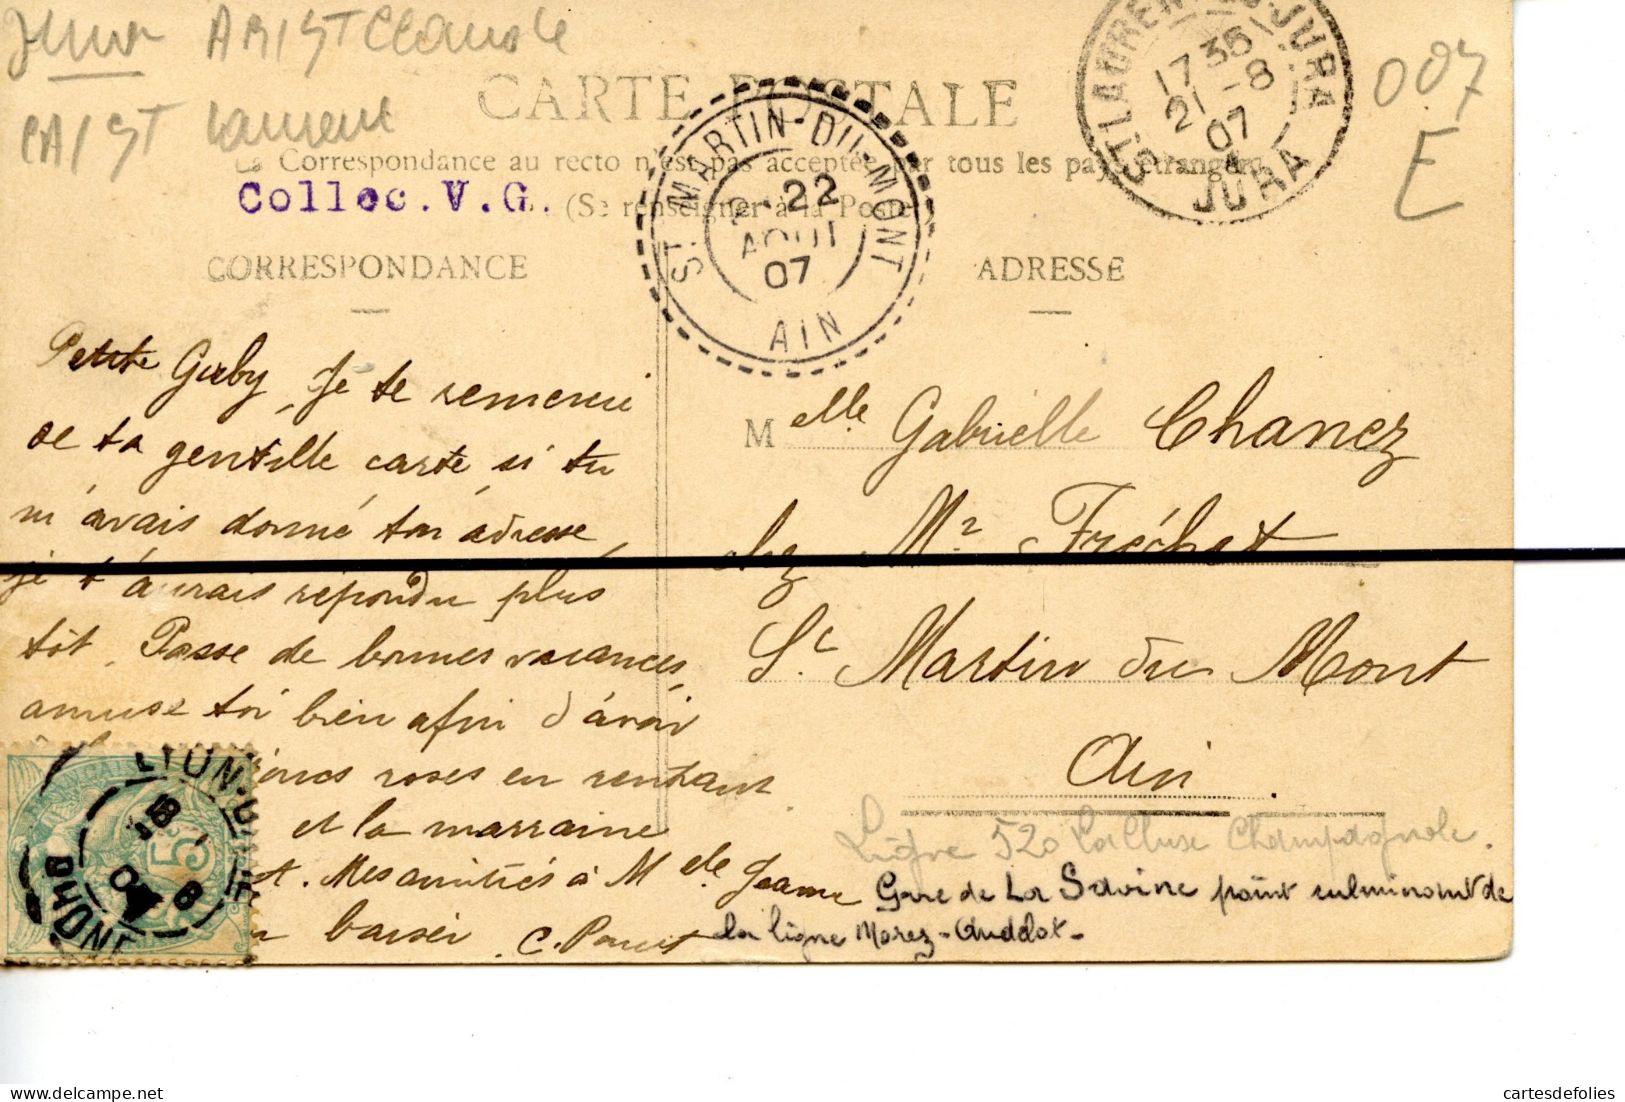 Jura ARIST Claude
CARTE POSTALE
ST LAURENT-DU-JURA
17 35
21-8
07
JURA
007
E
CAIST Laurent
La Correspondance au recto n'est pas acceptée par tous les pays étrangers
Collec.V.G.
(Se renseigner à la Poste)
ST. MARTIN-DU-MONT
22
AOUT
07
AIN
CORRESPONDANCE
ADRESSE
Petite Gaby, Je te remercie
de ta gentille carte si tu
m'avais donné ton adresse,
je t'aurais répondu plus
tôt. Passe de bonnes vacances,
amuse toi bien afin d'avoir
roses en rentrant
et la marraine
Mes amitiés à Melle Jeanne
baiser C.
Melle Gabrielle Chanez
chez Mr Fréchet
St Martin du Mont
Ain
Ligne 520 La Cluse Champagnole.
Gare de La Savine point culminant de
la ligne Morez-Andelot-
LYON-
RHONE
5
cartesdefolies